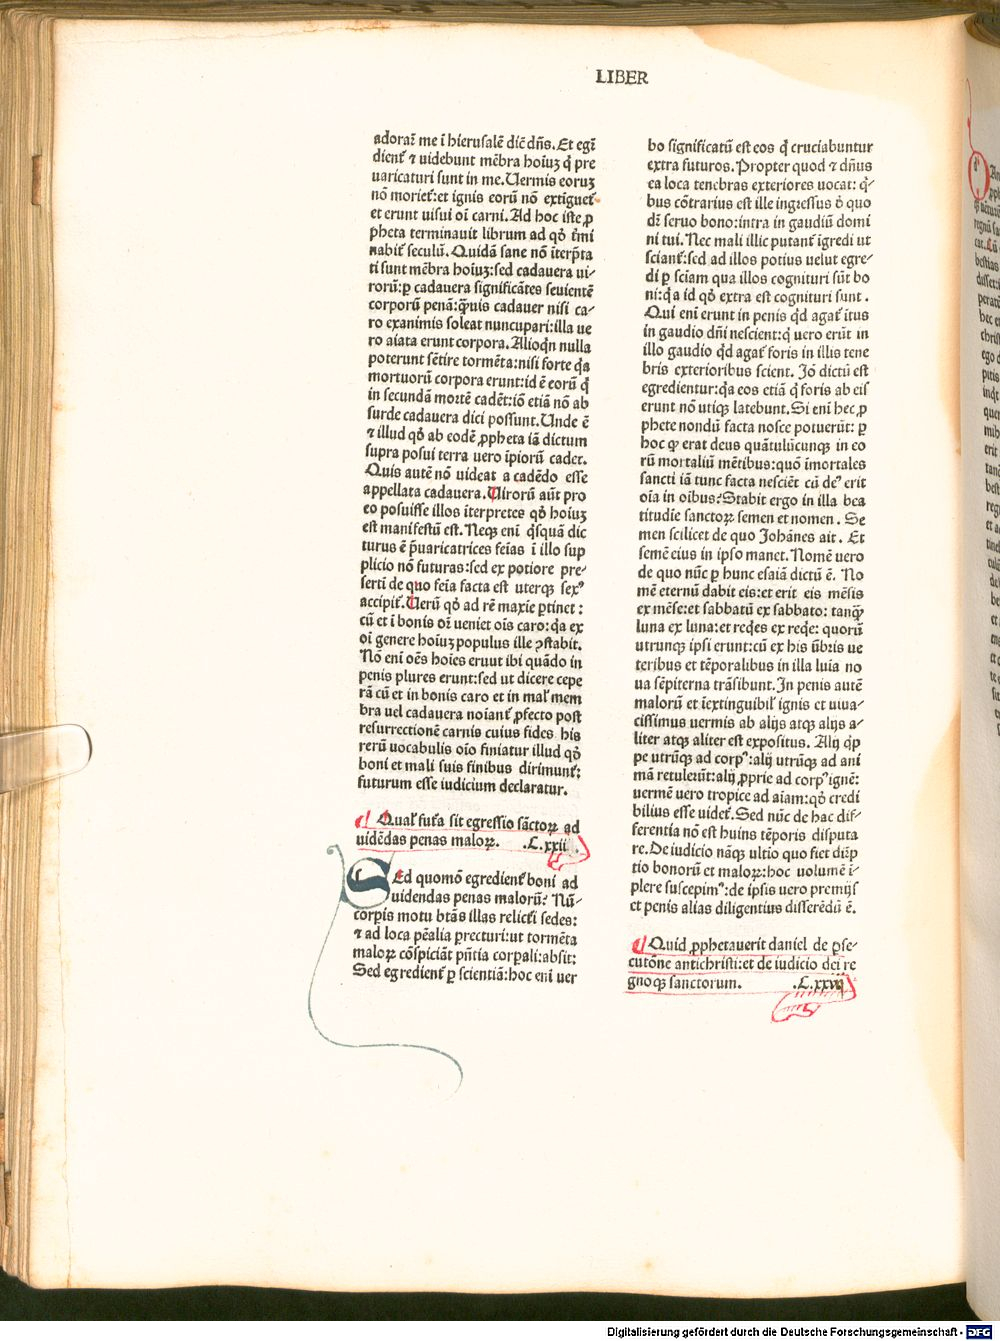 LIBER
adoraꝛ̃ me ĩ hierusalẽ dic̃ dñs. Et egr̃
dient᷑ ⁊ uidebunt mẽbra hoiuȝ q̃ pre
uaricaturi sunt in me. Uermis eoruȝ
nõ moriet᷑: et ignis eorũ nõ extiguet᷑
et erunt uisui oĩ carni. Ad hoc iste ꝓ
pheta terminauit librum ad qȯ t̃mi
nabit᷑ seculũ. Quidã sane nõ iterp̃ta
ti sunt mẽbra hoiuȝ: sed cadauera ui⸗
rorũ: ꝑ cadauera significãtes seuientẽ
corporũ penã: q̃uis cadauer nisi ca⸗
ro exanimis soleat nuncupari: illa ue
ro aiata erunt corpora. Alioqn̄ nulla
poterunt sẽtire tormẽta: nisi forte q̇a
mortuorũ corpora erunt: id ẽ eorũ q̇
in secundã mortẽ cadẽt: iõ etiã nõ ab
surde cadauera dici possunt. Unde ẽ
⁊ illud qȯ ab eodẽ ꝓpheta iã dictum
supra posui terra uero ĩpiorũ cadet.
Quis autẽ nõ uideat a cadẽdo esse
appellata cadauera. Uirorũ aũt pro
eo posuisse illos ĩterpretes qȯ hoiuȝ
est manifestũ est. Neqꝫ enĩ q̇squã dic
turus ẽ p̃uaricatrices feĩas ĩ illo sup
plicio nõ futuras: sed ex potiore pre⸗
sertĩ de quo feĩa facta est uterqꝫ sexꝰ
accipit᷑. Uerũ qȯ ad rẽ maxie ꝑtinet:
cũ et ĩ bonis oĩ ueniet oĩs caro: q̇a ex
oĩ genere hoiuȝ populus ille ꝯstabit.
Nõ enĩ oẽs hoies eruut ibi quãdo in
penis plures erunt: sed ut dicere cepe
rã cũ et in bonis caro et in mal᷑ mem
bra uel cadauera noĩant᷑ ꝓfecto post
resurrectionẽ carnis cuius fides his
rerũ uocabulis oĩo finiatur illud qȯ
boni et mali suis finibus dirimunt᷑:
futurum esse iudicium declaratur.
Qual᷑ fut᷑a sit egressio sãctoꝝ ad
uidẽdas penas maloꝝ. .C.xxii.
SEd quomõ egredient᷑ boni ad
uidendas penas malorũ? Nũ⸗
corpis motu btãs illas relict᷑i sedes:
⁊ ad loca pẽalia ꝑrecturi: ut tormẽta
maloꝝ cõspiciãt p̃ntia corpali: absit:
Sed egredient᷑ ꝑ scientiã: hoc enĩ uer
bo significatũ est eos q̇ cruciabuntur
extra futuros. Propter quod ⁊ dñus
ea loca tenebras exteriores uocat: q̇⸗
bus cõtrarius est ille ingressus ȯ quo
dꝛ̃ seruo bono: intra in gaudiũ domi
ni tui. Nec mali illic putant᷑ igredi ut
sciant᷑: sed ad illos potius uelut egre⸗
di ꝑ sciam qua illos cognituri sũt bo
ni: q̇a id qȯ extra est cognituri sunt.
Qui enĩ erunt in penis q̇d agat᷑ itus
in gaudio dñi nescient: q̇ uero erũt in
illo gaudio q̇d agat᷑ foris in illis tene
bris exterioribus scient. Iõ dictũ est
egredientur: q̇a eos etiã q̇ foris ab eis
erunt nõ utiqꝫ latebunt. Si enĩ hec ꝓ
phete nondũ facta nosce potuerũt: ꝑ
hoc ꝙ erat deus quãtulũcunqꝫ in eo
rũ mortaliũ mẽtibus: quõ ĩmortales
sancti iã tunc facta nesciẽt cũ deꝰ erit
oĩa in oĩbus? Stabit ergo in illa bea
titudĩe sanctoꝝ semen et nomen. Se
men scilicet de quo Johãnes ait. Et
semẽ eius in ipso manet. Nomẽ uero
de quo nũc ꝑ hunc esaiã dictũ ẽ. No
mẽ eternũ dabit eis: et erit eis mẽsis
ex mẽse: et sabbatũ ex sabbato: tanqꝫ̃
luna ex luna: et reqes ex reqe: quorũ
utrunqꝫ ipsi erunt: cũ ex his ũbris ue
teribus et tẽporalibus in illa luia no
ua sẽpiterna trãsibunt. In penis autẽ
malorũ et ĩextinguibil᷑ ignis et uiua⸗
cissimus uermis ab alijs atqꝫ alijs a⸗
liter atqꝫ aliter est expositus. Alij q̇p
pe utrũqꝫ ad corpꝰ: alij utrũqꝫ ad ani
mã retulerũt: alij ꝓprie ad corpꝰ ignẽ:
uermẽ uero tropice ad aiam: qȯ credi
bilius esse uidet᷑. Sed nũc de hac dif⸗
ferentia nõ est huius tẽporis disputa
re. De iudicio nãqꝫ ultio quo fiet diẽp
tio bonorũ et maloꝝ: hoc uolumẽ ĩ⸗
plere suscepimꝰ: de ipsis uero premijs
et penis alias diligentius differẽdũ ẽ.
Quid ꝓphetauerit daniel de ꝑse⸗
cutõne antichristi: et de iudicio dei re
gnoqꝫ sanctorum. .C.xxvij